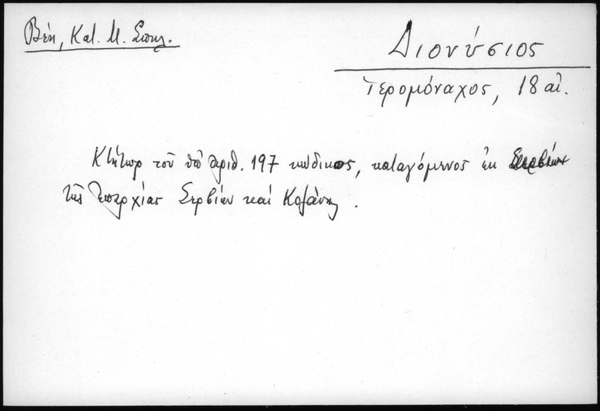 Βέη, Κατ. Μ. Σπηλ.
Διονύσιος
Ἱερομόναχος, 18 αἰ.
Κτήτωρ τοῦ ὑπ' ἀριθ. 197 κώδικος, καταγόμενος ἐκ
τῆς ἐπαρχίας Σερβίων καί Κοζάνης.